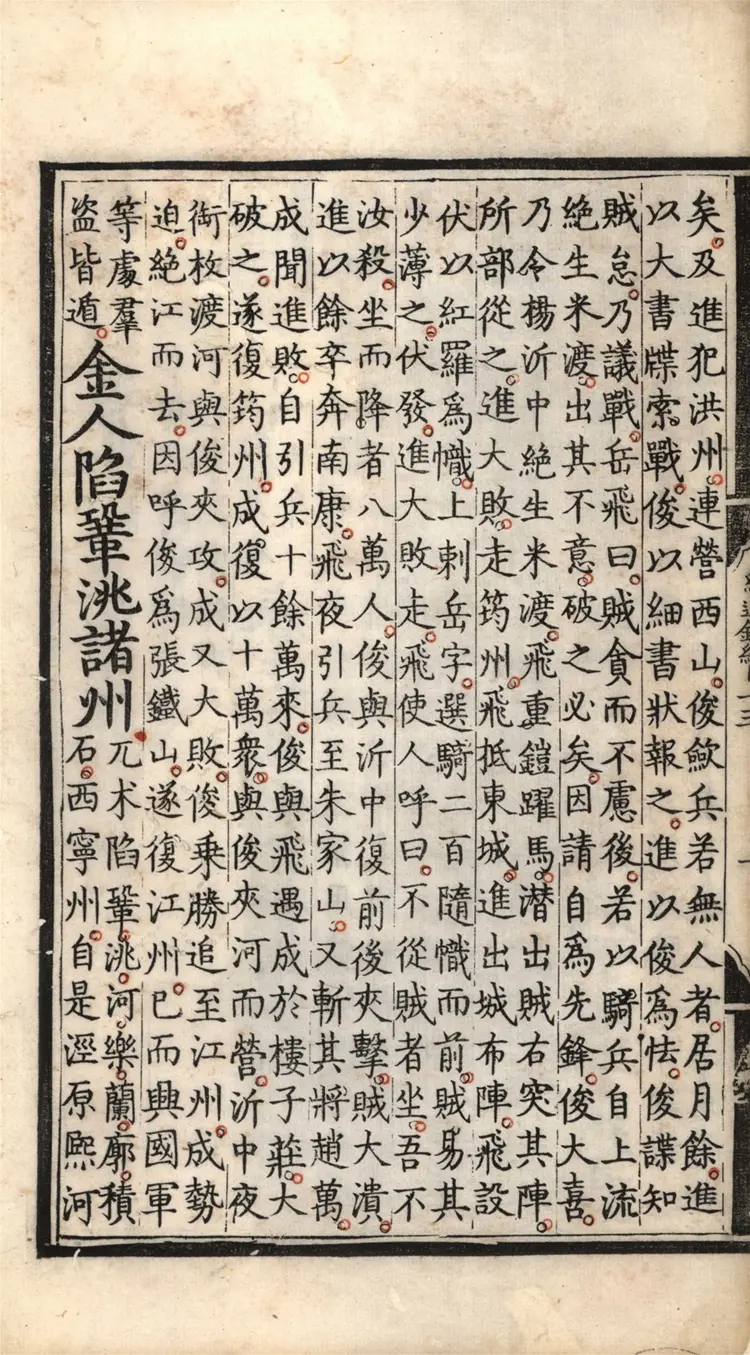 矣及進犯洪州連營西山俊歛兵若無人者居月餘進
以大書牒索戰俊以細書狀報之進以俊爲怯俊諜知
賊怠乃議戰岳飛曰賊貪而不慮後若以騎兵自上流
絶生米渡出其不意破之必矣因請自爲先鋒俊大喜
乃令楊沂中絶生米渡飛重鎧躍馬潜出賊右突其陣
所部從之進大敗走筠州飛抵東城進出城布陣飛設
伏以紅羅爲幟上刺岳字選騎二百隨幟而前賊易其
少薄之伏發進大敗走飛使人呼曰不從賊者坐吾不
汝殺坐而降者八萬人俊與沂中復前後夾擊賊大潰
進以餘卒奔南康飛夜引兵至朱家山又斬其將趙萬
成聞進敗自引兵十餘萬來俊與飛遇成於樓子莊大
破之遂復筠州成復以十萬衆與俊夾河而營沂中夜
銜枚渡河與俊夾攻成又大敗俊乘勝追至江州成勢
迫絶江而去因呼俊爲張鐵山遂復江州已而興國軍
等處羣
盜皆遁
金人陷鞏洮諸州
兀术陷鞏洮河樂蘭廓積
石西寧州自是涇原熙河